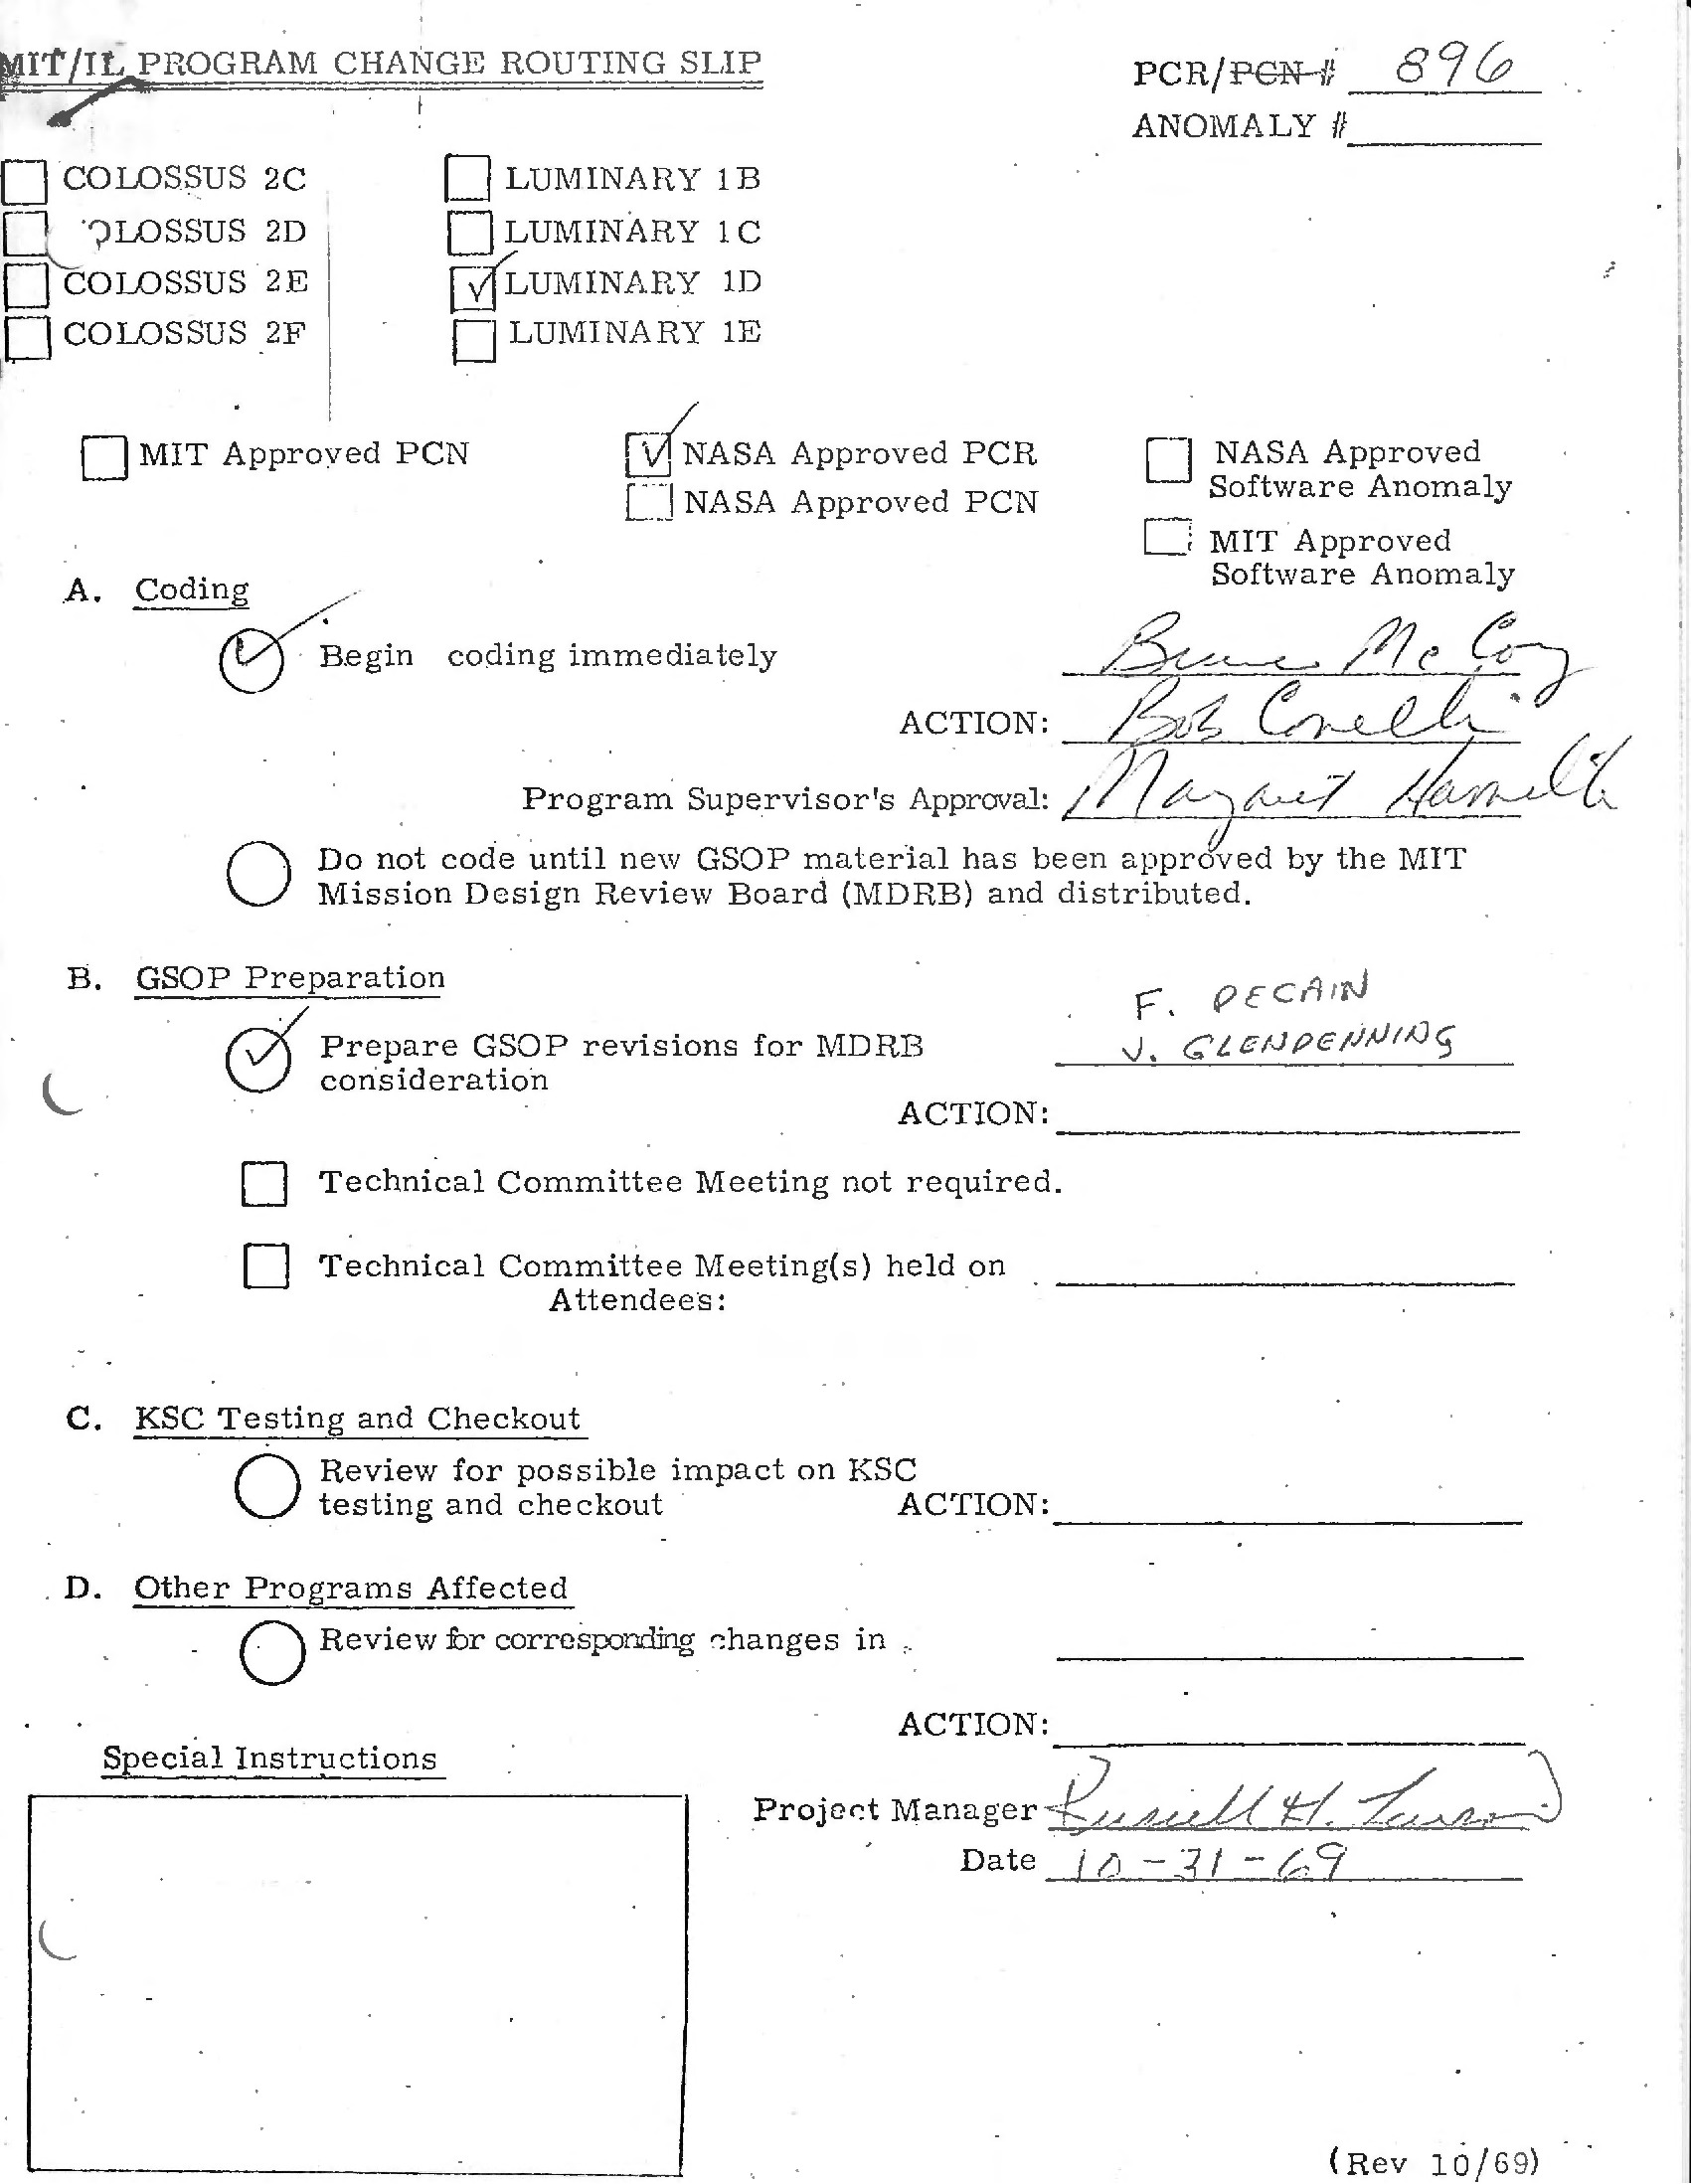 MIT/IL PROGRAM CHANGE ROUTING SLIP
PCR/PCN # 896
ANOMALY #
COLOSSUS 2C
LUMINARY 1B
OLOSSUS 2D
LUMINARY 1C
COLOSSUS 2E
LUMINARY 1D
COLOSSUS 2F
LUMINARY 1E
MIT Approved PCN
NASA Approved PCR
NASA Approved
Software Anomaly
NASA Approved PCN
MIT Approved
Software Anomaly
A. Coding
Begin coding immediately
Bruce McCoy
ACTION: Bob Covelli
Program Supervisor's Approval: Margaret Hamilton
Do not code until new GSOP material has been approved by the MIT
Mission Design Review Board (MDRB) and distributed.
B. GSOP Preparation
F. DECAIN
Prepare GSOP revisions for MDRB
consideration
J. GLENDENNING
ACTION:
Technical Committee Meeting not required.
Technical Committee Meeting(s) held on
Attendees:
C. KSC Testing and Checkout
Review for possible impact on KSC
testing and checkout
ACTION:
D. Other Programs Affected
Review for corresponding changes in
ACTION:
Special Instructions
Project Manager Russell H. Larson
Date 10-31-69
(Rev 10/69)